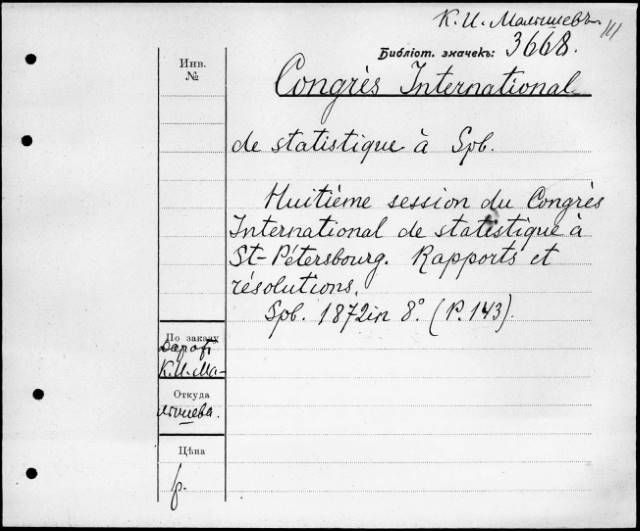 К. И. Малышевъ
Библіот. значекъ: 3668.
Инв.
№
Congrès International
de statistique à Spb.
Huitième session du Congrès
International de statistique à
St-Pétersbourg. Rapports et
résolutions.
Spb. 1872 in 8°. (P. 143).
По заказу
Даръ отъ
К. И. Ма-
Откуда
лышева.
Цѣна
р.